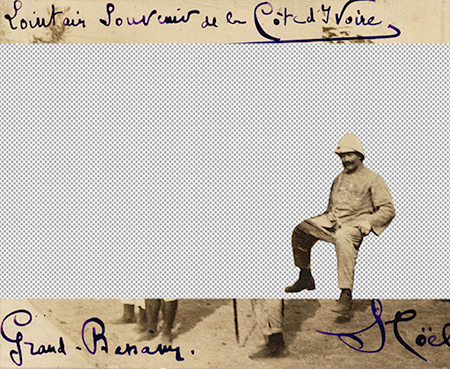 Lointain Souvenir de la Côte d'Ivoire
Grand-Bassam. Noël